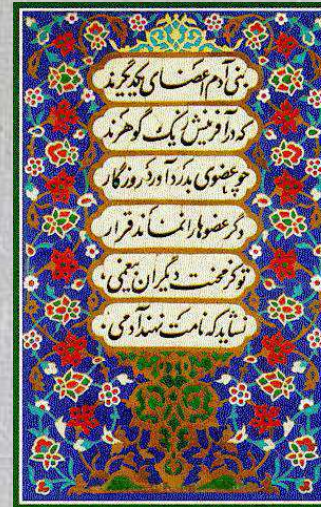 بنی آدم اعضای یکدیگرند
که در آفرینش ز یک گوهرند
چو عضوی بدرد آورد روزگار
دگر عضوها را نماند قرار
تو کز محنت دیگران بی غمی
نشاید که نامت نهند آدمی